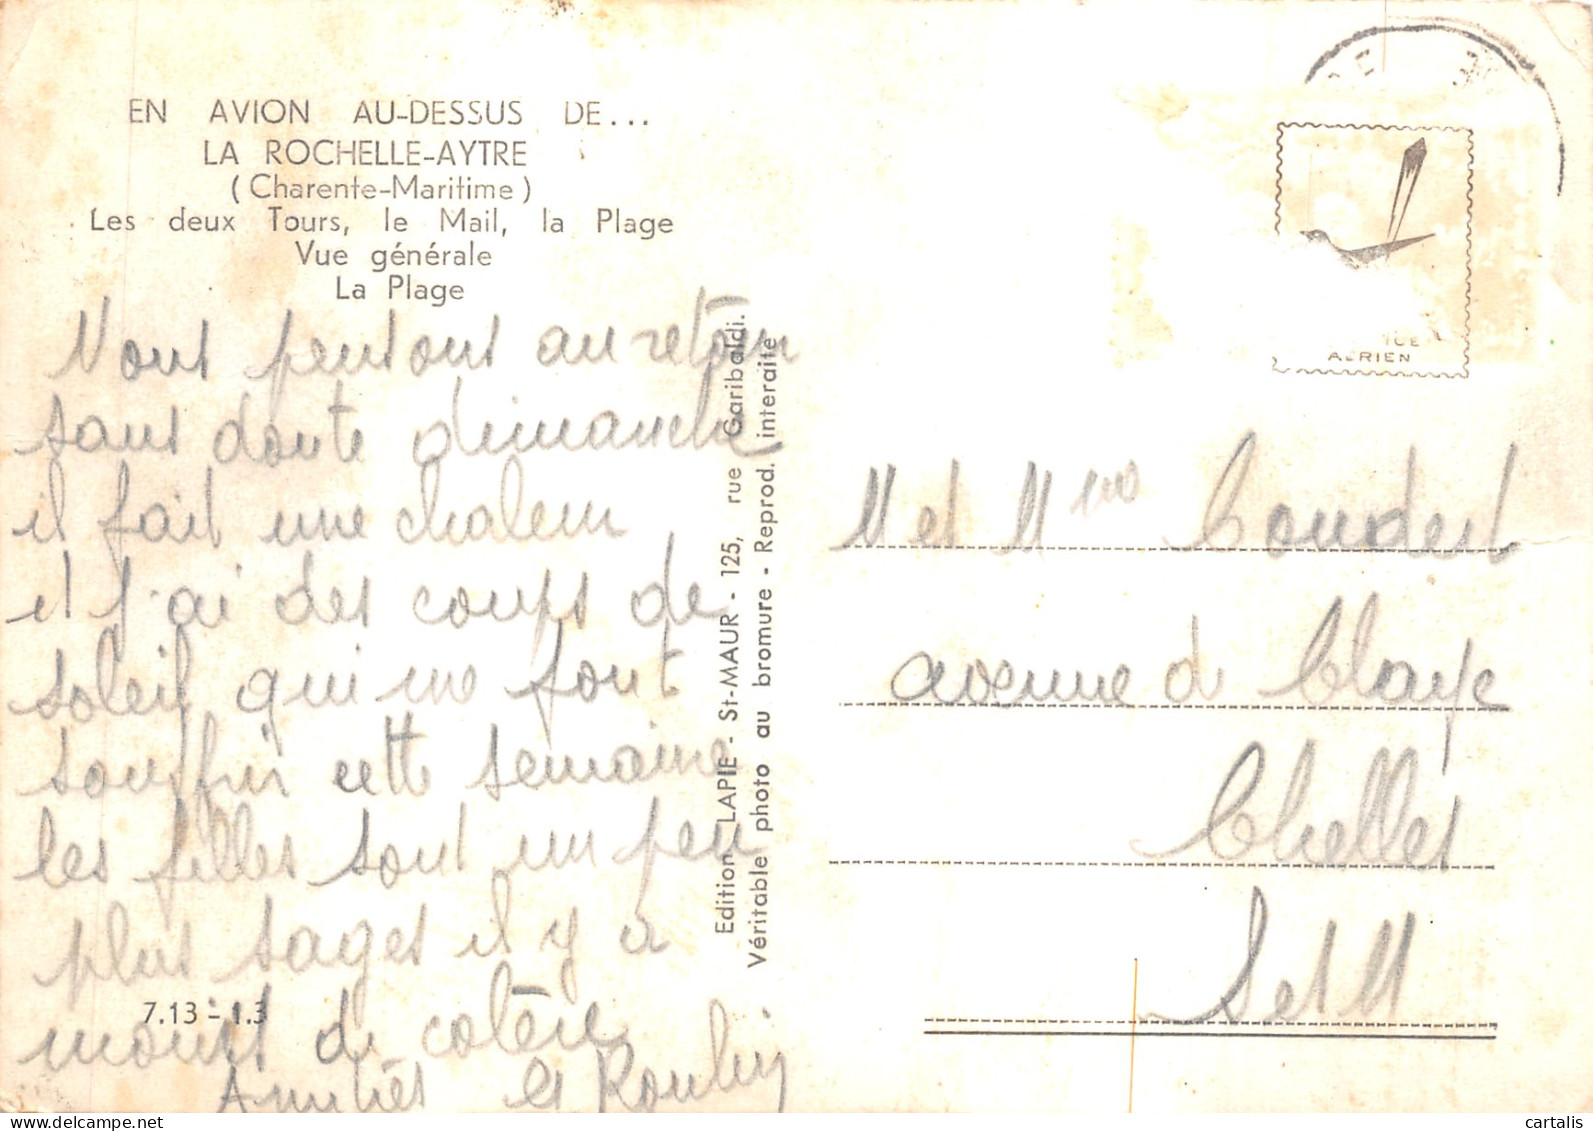 EN AVION AU-DESSUS DE...
LA ROCHELLE-AYTRE
(Charente-Maritime)
Les deux Tours, le Mail, la Plage
Vue générale
La Plage
Nous pensons au retour
sans doute dimanche
il fait une chaleur
il j'ai des coups de
soleil qui me font
souffrir cette semaine
les filles sont un peu
plus sages il y a
moins de colère
Amitiés les
7.13 - 1.3
Edition LAPIE - St-MAUR - 125, rue Garibaldi.
Véritable photo au bromure - Reprod. interdite
AERIEN
M et Mme Coudert
avenue de Claye
Chelles
S et M
cartalis
www.delcampe.net